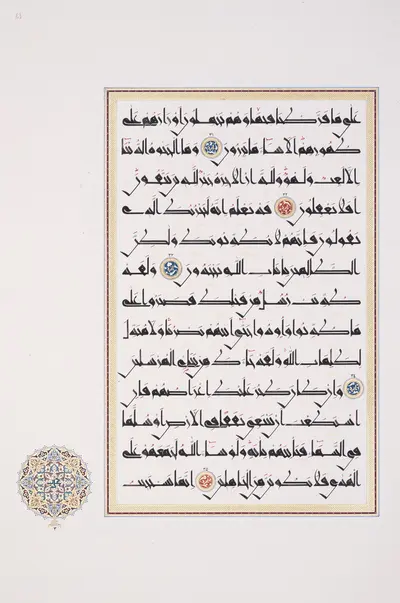 على ما فرطنا فيها وهم يحملون أوزارهم على
ظهورهم ألا ساء ما يزرون ٣١ وما الحيوة الدنيا
إلا لعب ولهو وللدار الآخرة خير للذين يتقون
أفلا تعقلون ٣٢ قد نعلم إنه ليحزنك الذي
يقولون فإنهم لا يكذبونك ولكن
الظالمين بآيات الله يجحدون ٣٣ ولقد
كذبت رسل من قبلك فصبروا على
ما كذبوا وأوذوا حتى أتاهم نصرنا ولا مبدل
لكلمات الله ولقد جاءك من نبإى المرسلين
٣٤ وإن كان كبر عليك إعراضهم فإن
استطعت أن تبتغي نفقا في الأرض أو سلما
في السماء فتأتيهم بآية ولو شاء الله لجمعهم على
الهدى فلا تكونن من الجاهلين ٣٥ إنما يستجيب